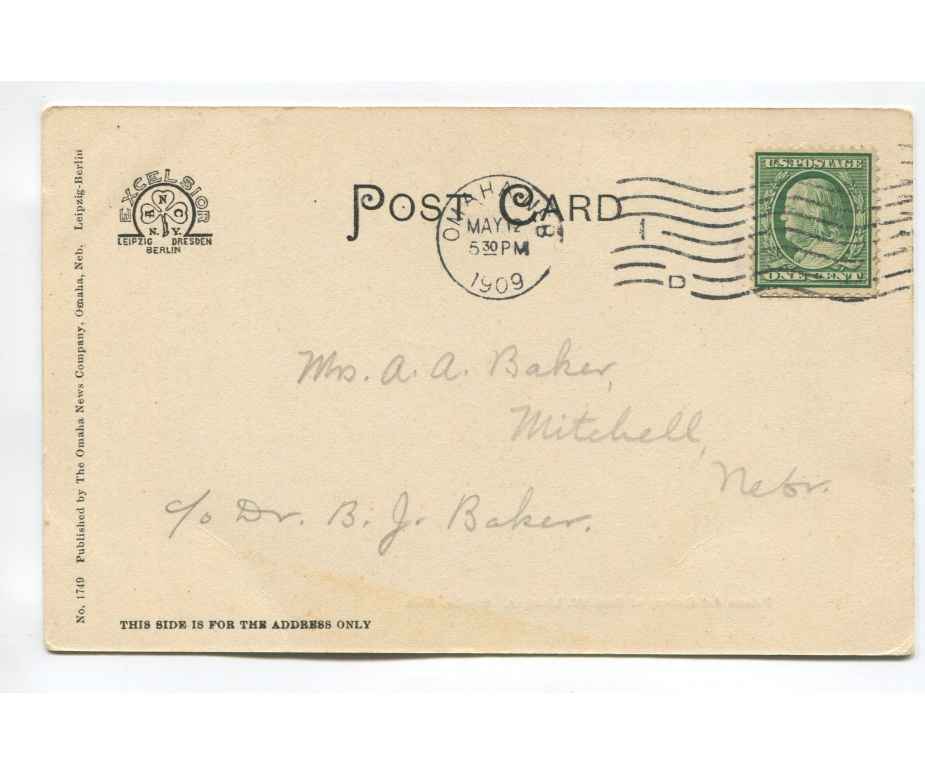 EXCELSIOR
A N C
N.Y.
LEIPZIG DRESDEN
BERLIN
POST CARD
OMAHA, NEB.
MAY 12
5 30 PM
1909
1
D
U.S. POSTAGE
ONE CENT
Mrs. A. A. Baker,
Mitchell,
Nebr.
c/o Dr. B. J. Baker.
THIS SIDE IS FOR THE ADDRESS ONLY
No. 1749 Published by The Omaha News Company, Omaha, Neb. Leipzig-Berlin